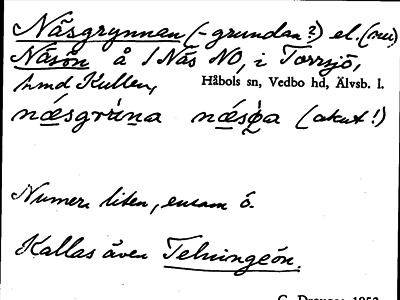 Näsgrynnan (-grundan?) el. (nu)
Näsön å 1 Näs NO, i Torrsjö,
hmd Kullen,
Håbols sn, Vedbo hd, Älvsb. l.
næsgrìna næsòa (akut!)
Numera liten, ensam ö.
Kallas även Telningeön.